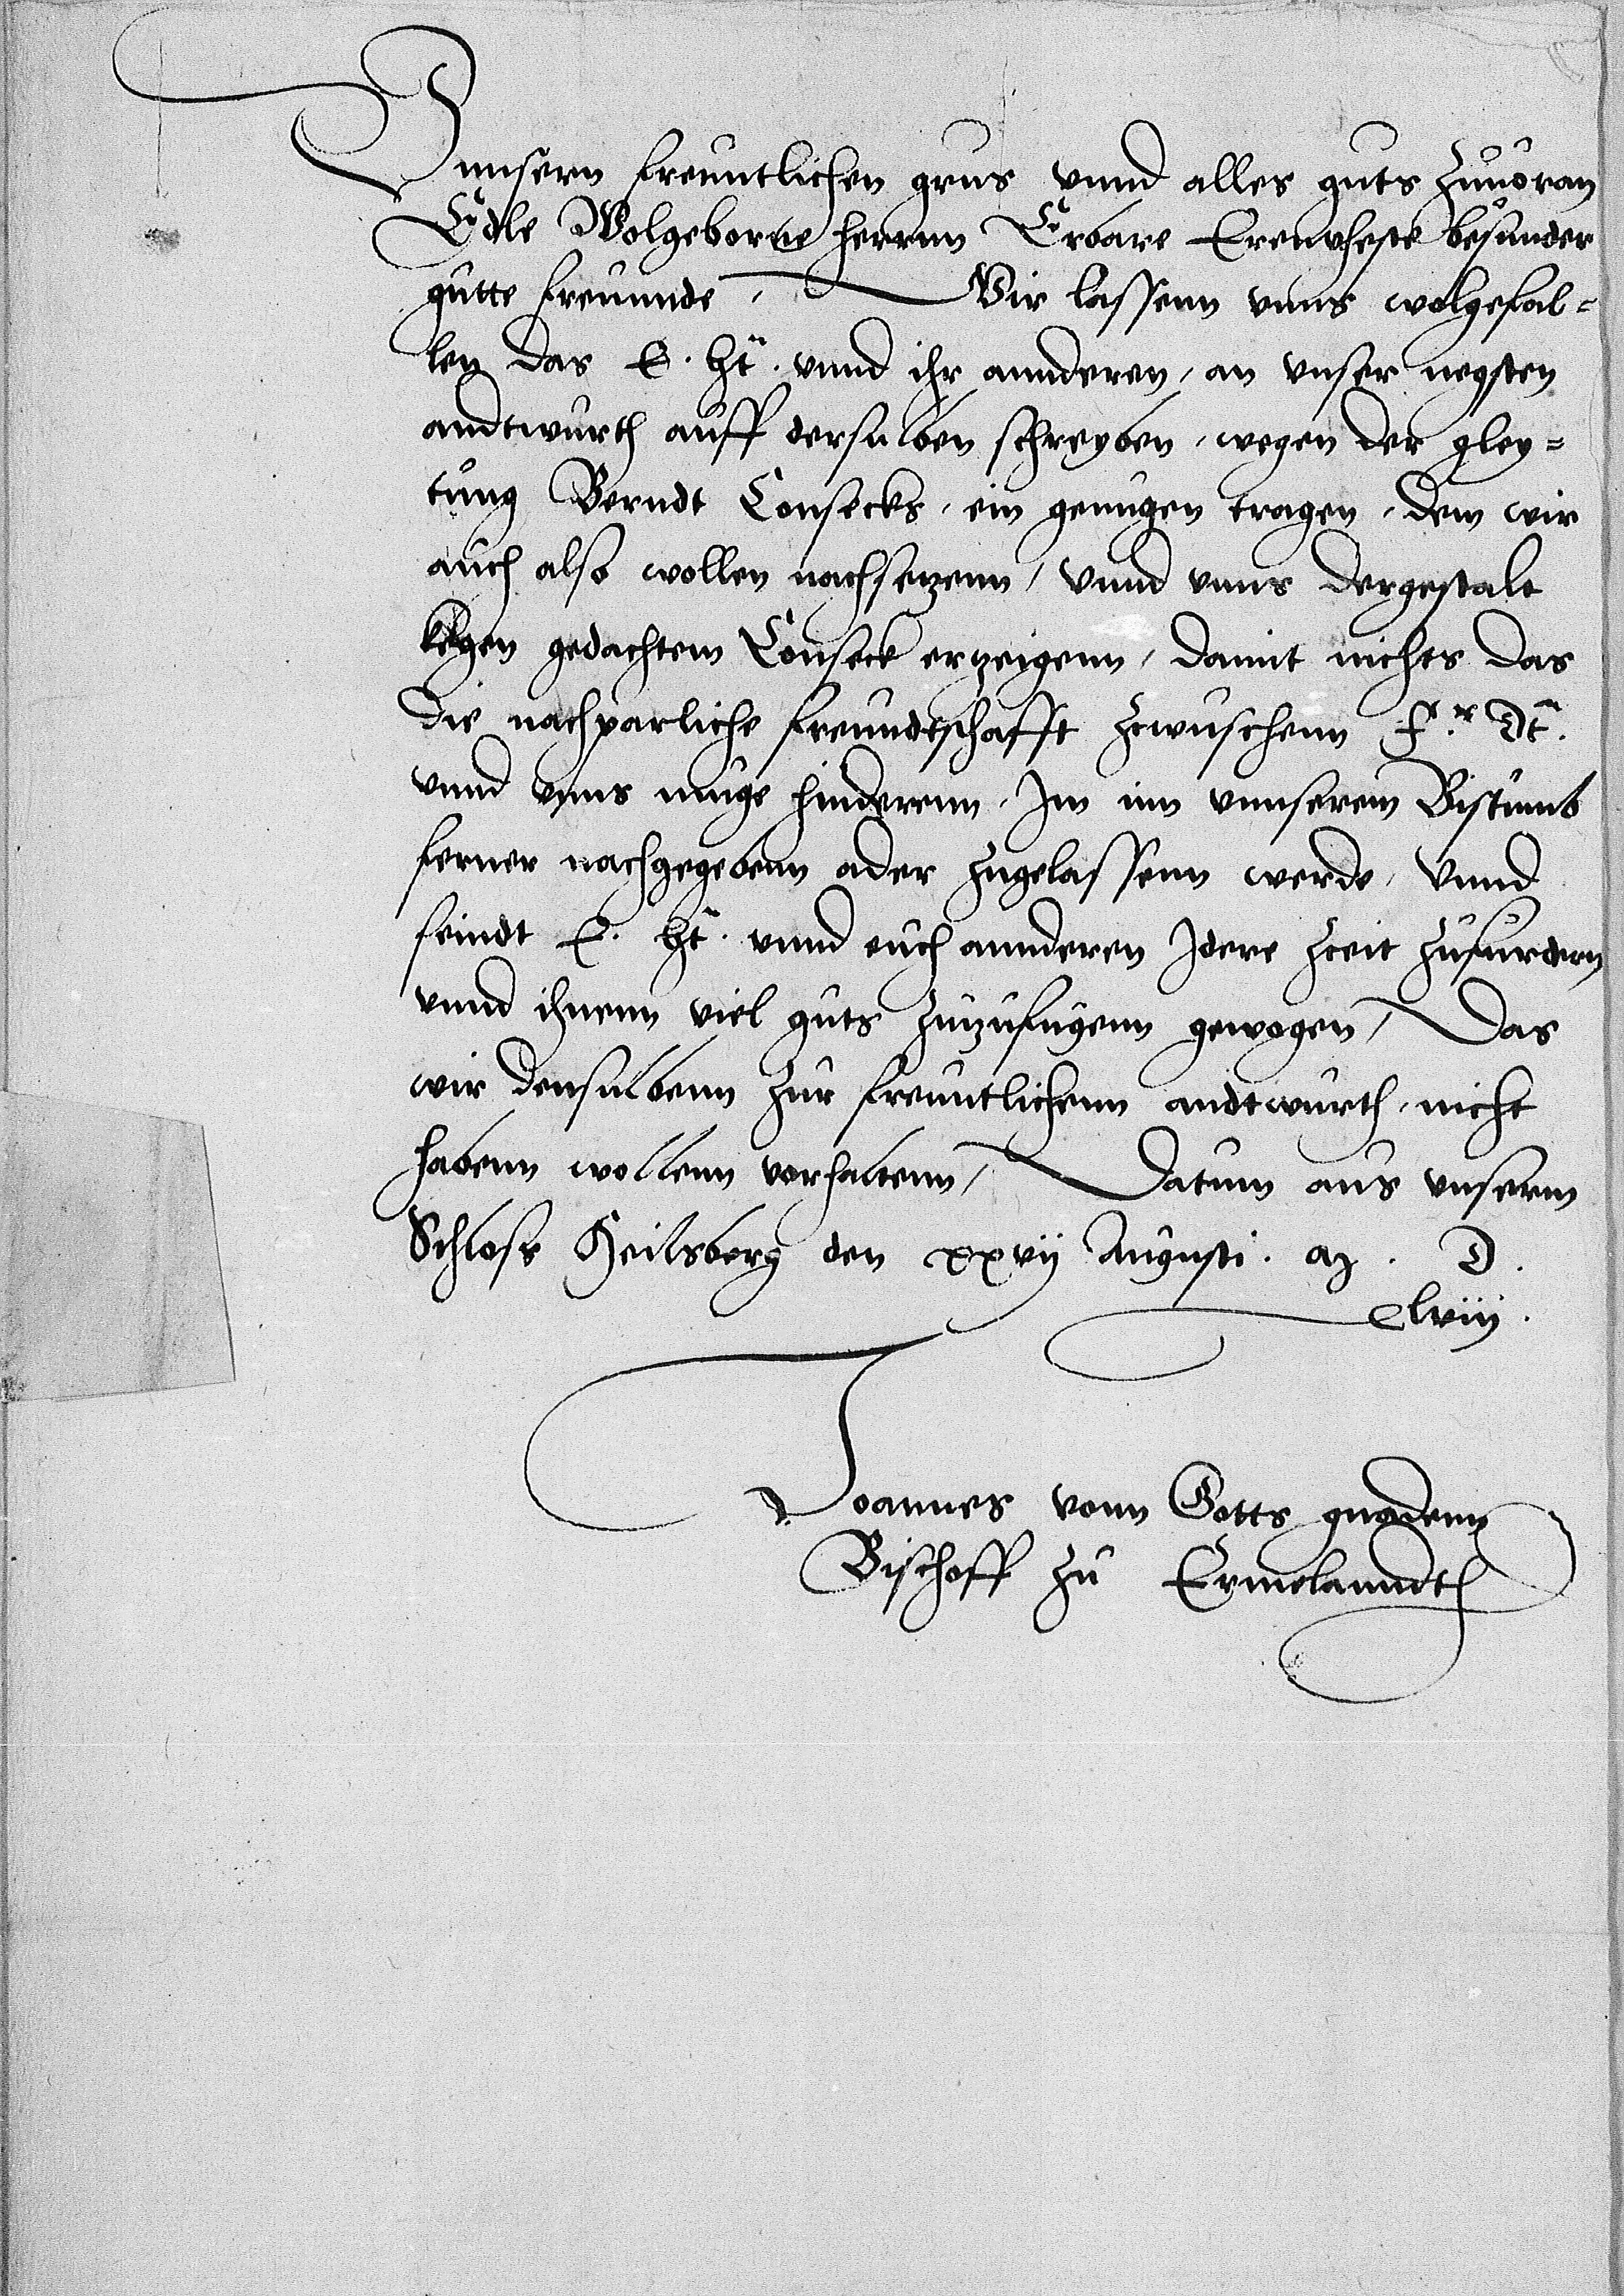 Vnnsern freuntlichen grus vnnd alles guts zuuoran
Edle Wolgeborne herrnn Erbare Erenthefte besunder
gutte freunnde, Wir lassenn vnns wolgefal=
len das E. Ht. vnnd ihr annderen, an vnser negsten
andtwurth auff derselben schreyben, wegen der gley=
tung Berndt Consecks, ein genugen tragen, dem wir
auch also wollen nachsetzenn, vnnd vnns dergestalt
kegen gedachtem Conseck erzeigenn, damit nichts das
die nachparliche freundtschafft zwuschenn F.r Dt.
vnnd vnns muge hinderenn, Im inn vnnserem Bistumb
ferner nachgegebenn ader zugelassenn werde, Vnnd
seindt E. Ht. vnnd euch annderen Idere Zceit zufurdern
vnnd ihnenn viel guts zuzufugenn gewogen, Das
wir denselbenn zur freuntlichenn andtwurth, nicht
habenn wollenn vorhaltenn, Datum aus vnserm
Schloss Heilsberg den xxvij Augusti. A. D.
xlviij.
Joannes vonn Gotts gnadenn
Bischoff zu Ermelanndth